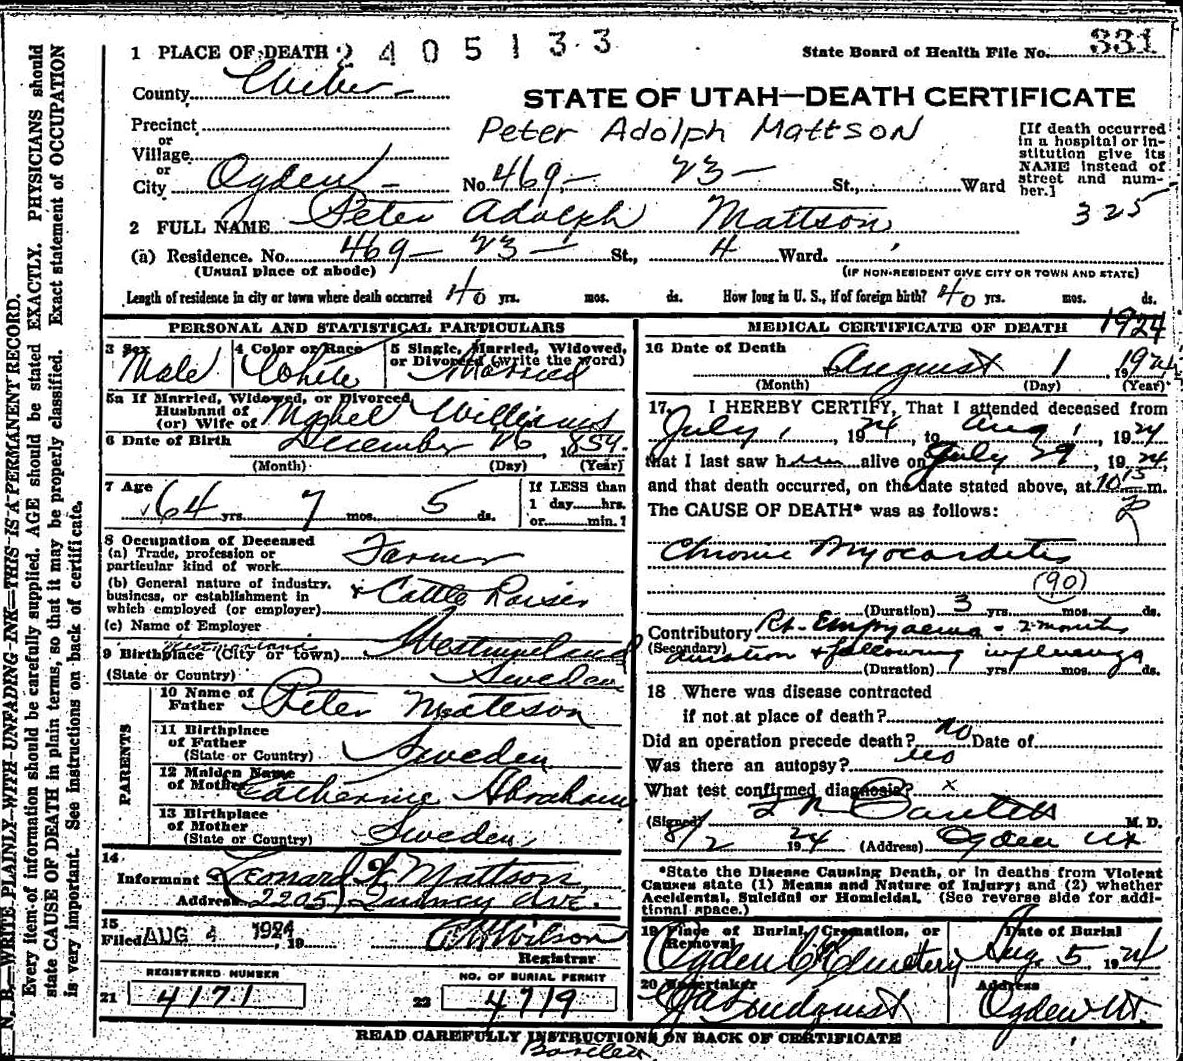 1 PLACE OF DEATH 2405133 State Board of Health File No. 331
County Weber
STATE OF UTAH—DEATH CERTIFICATE
Precinct
or
Village
or
City Ogden No. 469 - 23 - St., Ward
Peter Adolph Mattson
[If death occurred
in a hospital or in-
stitution give its
NAME instead of
street and num-
ber.]
325
2 FULL NAME Peter Adolph Mattson
(a) Residence. No. 469 - 23 - St., 4 Ward.
(Usual place of abode) (IF NON-RESIDENT GIVE CITY OR TOWN AND STATE)
Length of residence in city or town where death occurred 40 yrs. mos. ds. How long in U. S., if of foreign birth? 40 yrs. mos. ds.
PERSONAL AND STATISTICAL PARTICULARS
3 Sex 4 Color or Race 5 Single, Married, Widowed,
or Divorced (write the word)
Male White Married
5a If Married, Widowed, or Divorced
Husband of
(or) Wife of Mabel Williams
6 Date of Birth December 26, 1859
(Month) (Day) (Year)
7 Age 64 yrs. 7 mos. 5 ds.
If LESS than
1 day hrs.
or min.?
8 Occupation of Deceased
(a) Trade, profession or
particular kind of work Farmer
(b) General nature of industry,
business, or establishment in
which employed (or employer) & Cattle Raiser
(c) Name of Employer
9 Birthplace (City or town)
(State or Country) Sweden
PARENTS
10 Name of
Father Peter Matteson
11 Birthplace
of Father
(State or Country) Sweden
12 Maiden Name
of Mother Catherine Abraham
13 Birthplace
of Mother
(State or Country) Sweden
14
Informant Leonard F Mattson
Address 2205 Quincy Ave.
15
Filed AUG 4 1924, 19
Wilson
Registrar
REGISTERED NUMBER NO. OF BURIAL PERMIT
21 4171 22 4719
MEDICAL CERTIFICATE OF DEATH 1924
16 Date of Death August 1 1924
(Month) (Day) (Year)
17. I HEREBY CERTIFY, That I attended deceased from
July 1, 1924, to Aug 1, 1924
that I last saw him alive on July 29, 1924,
and that death occurred, on the date stated above, at 10 15 m.
P
The CAUSE OF DEATH* was as follows:
Chronic Myocarditis
(90)
(Duration) 3 yrs. mos. ds.
Contributory Rt. Empyaema - 2 months
(Secondary) duration & following influenza
(Duration) yrs. mos. ds.
18 Where was disease contracted
if not at place of death?
Did an operation precede death? no Date of
Was there an autopsy? no
What test confirmed diagnosis? x
(Signed) M. D.
8/2 1924 (Address) Ogden Ut
*State the Disease Causing Death, or in deaths from Violent
Causes state (1) Means and Nature of Injury; and (2) whether
Accidental, Suicidal or Homicidal. (See reverse side for addi-
tional space.)
19 Place of Burial, Cremation, or
Removal
Date of Burial
Ogden C Cemetery Aug. 5 1924
20 Undertaker Address
Lindquist Ogden Ut.
READ CAREFULLY INSTRUCTIONS ON BACK OF CERTIFICATE
N. B.—WRITE PLAINLY—WITH UNFADING INK—THIS IS A PERMANENT RECORD.
Every item of information should be carefully supplied. AGE should be stated EXACTLY. PHYSICIANS should
state CAUSE OF DEATH in plain terms, so that it may be properly classified. Exact statement of OCCUPATION
is very important. See instructions on back of certificate.